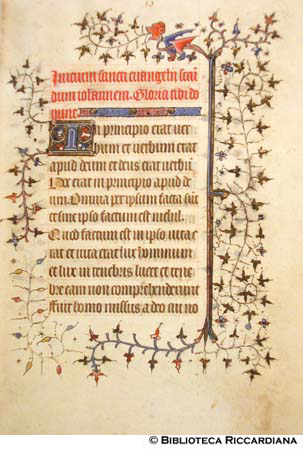 Inicium sancti euangelii secun
dum iohannem. Gloria tibi do
mine
In principio erat uer
bum et uerbum erat
apud deum et deus erat uerbū
Hoc erat in principio apud de
um. Omnia per ipsum facta sūt
et sine ipso factum est nichil.
Quod factum est in ipso uita e
rat et uita erat lux hominum
et lux in tenebris lucet et tene
bre eam non comprehenderunt
fuit homo missus a deo cui no
© BIBLIOTECA RICCARDIANA